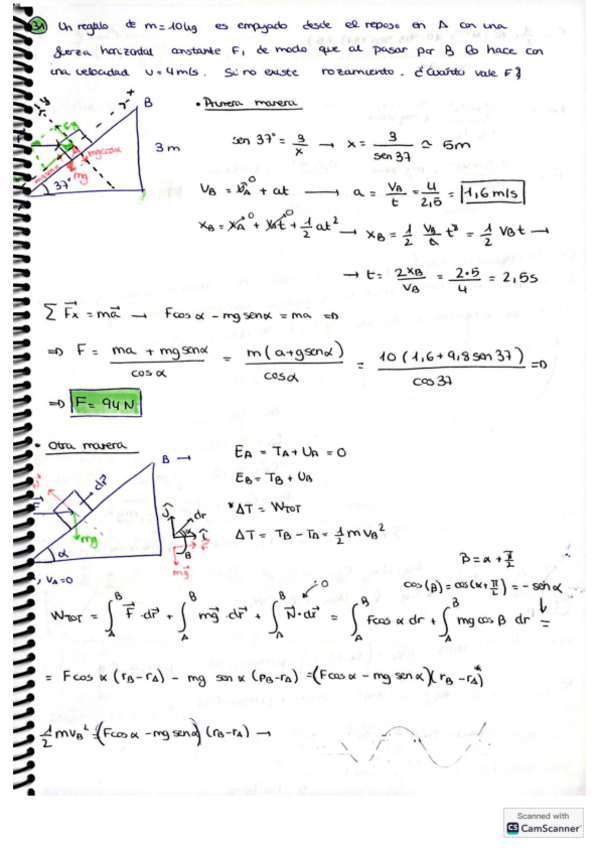 31 Un regalo de m=10kg es empujado desde el reposo en A con una
fuerza horizontal constante F, de modo que al pasar por B lo hace con
una velocidad v=4m/s. Si no existe rozamiento. ¿Cuánto vale F?
• Primera manera
y
x
B
Fg
mgcosα
mg
37°
3 m
sen 37° = 3/x → x = 3/sen 37 ≃ 5m
V_B = V_A^0 + at → a = V_B/t = 4/2,5 = 1,6 m/s
x_B = x_A^0 + V_A t^0 + 1/2 at² → x_B = 1/2 V_B/t t² = 1/2 V_B t →
→ t = 2x_B/V_B = 2·5/4 = 2,5s
Σ F_x = ma → Fcosα - mg senα = ma ⇒
⇒ F = (ma + mg senα)/cosα = m(a+g senα)/cosα = 10(1,6+9,8 sen 37)/cos 37 ⇒
⇒ F = 94 N
• Otra manera
B →
E_A = T_A + U_A = 0
E_B = T_B + U_B
*ΔT = W_TOT
ΔT = T_B - T_A = 1/2 m V_B²
dr
F
mg
α
j
dr
α
i
B
mg
, V_A=0
β = α + π/2
cos(β) = cos(α+π/2) = - senα
W_TOT = ∫_A^B F·dr + ∫_A^B mg·dr + ∫_A^B N·dr^0 = ∫_A^B Fcosα dr + ∫_A^B mg cosβ dr =
= Fcosα (r_B-r_A) - mg senα (r_B-r_A) = (Fcosα - mg senα)(r_B-r_A)*
1/2 mV_B² = (Fcosα - mg senα)(r_B-r_A) →
Scanned with
CS CamScanner